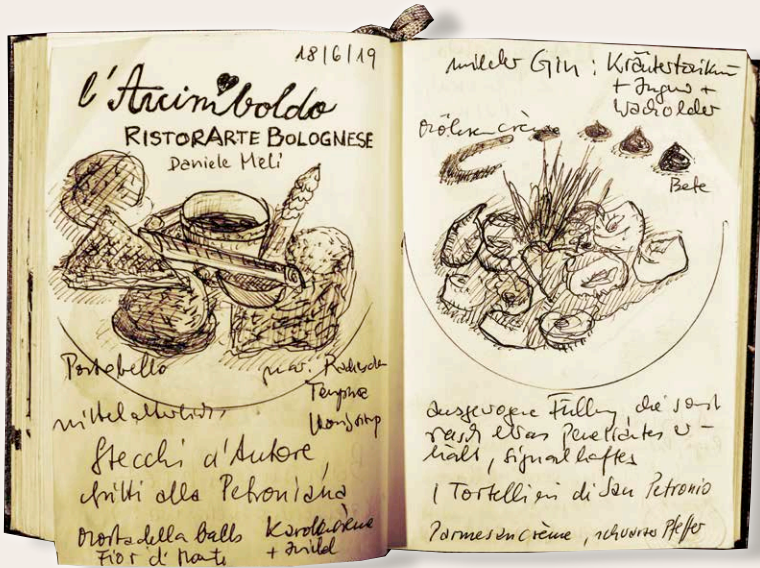 18/6/19
l'Arcimboldo
RISTORARTE BOLOGNESE
Daniele Meli
Portobello
mar. Radieschen
Tempura
Stecchi d'Autore
fritti alla Petroniana
Mortadella balls
Fior di Monte
Karottencrème
+
milder Gin: Kräuter
+ Ingwer +
Wacholder
crème
Bete
ausgewogene Füllung, die sonst
rasch etwas Penetrantes er-
hält, signalhaftes
I Tortellini di San Petronio
Parmesancrème, schwarzer Pfeffer